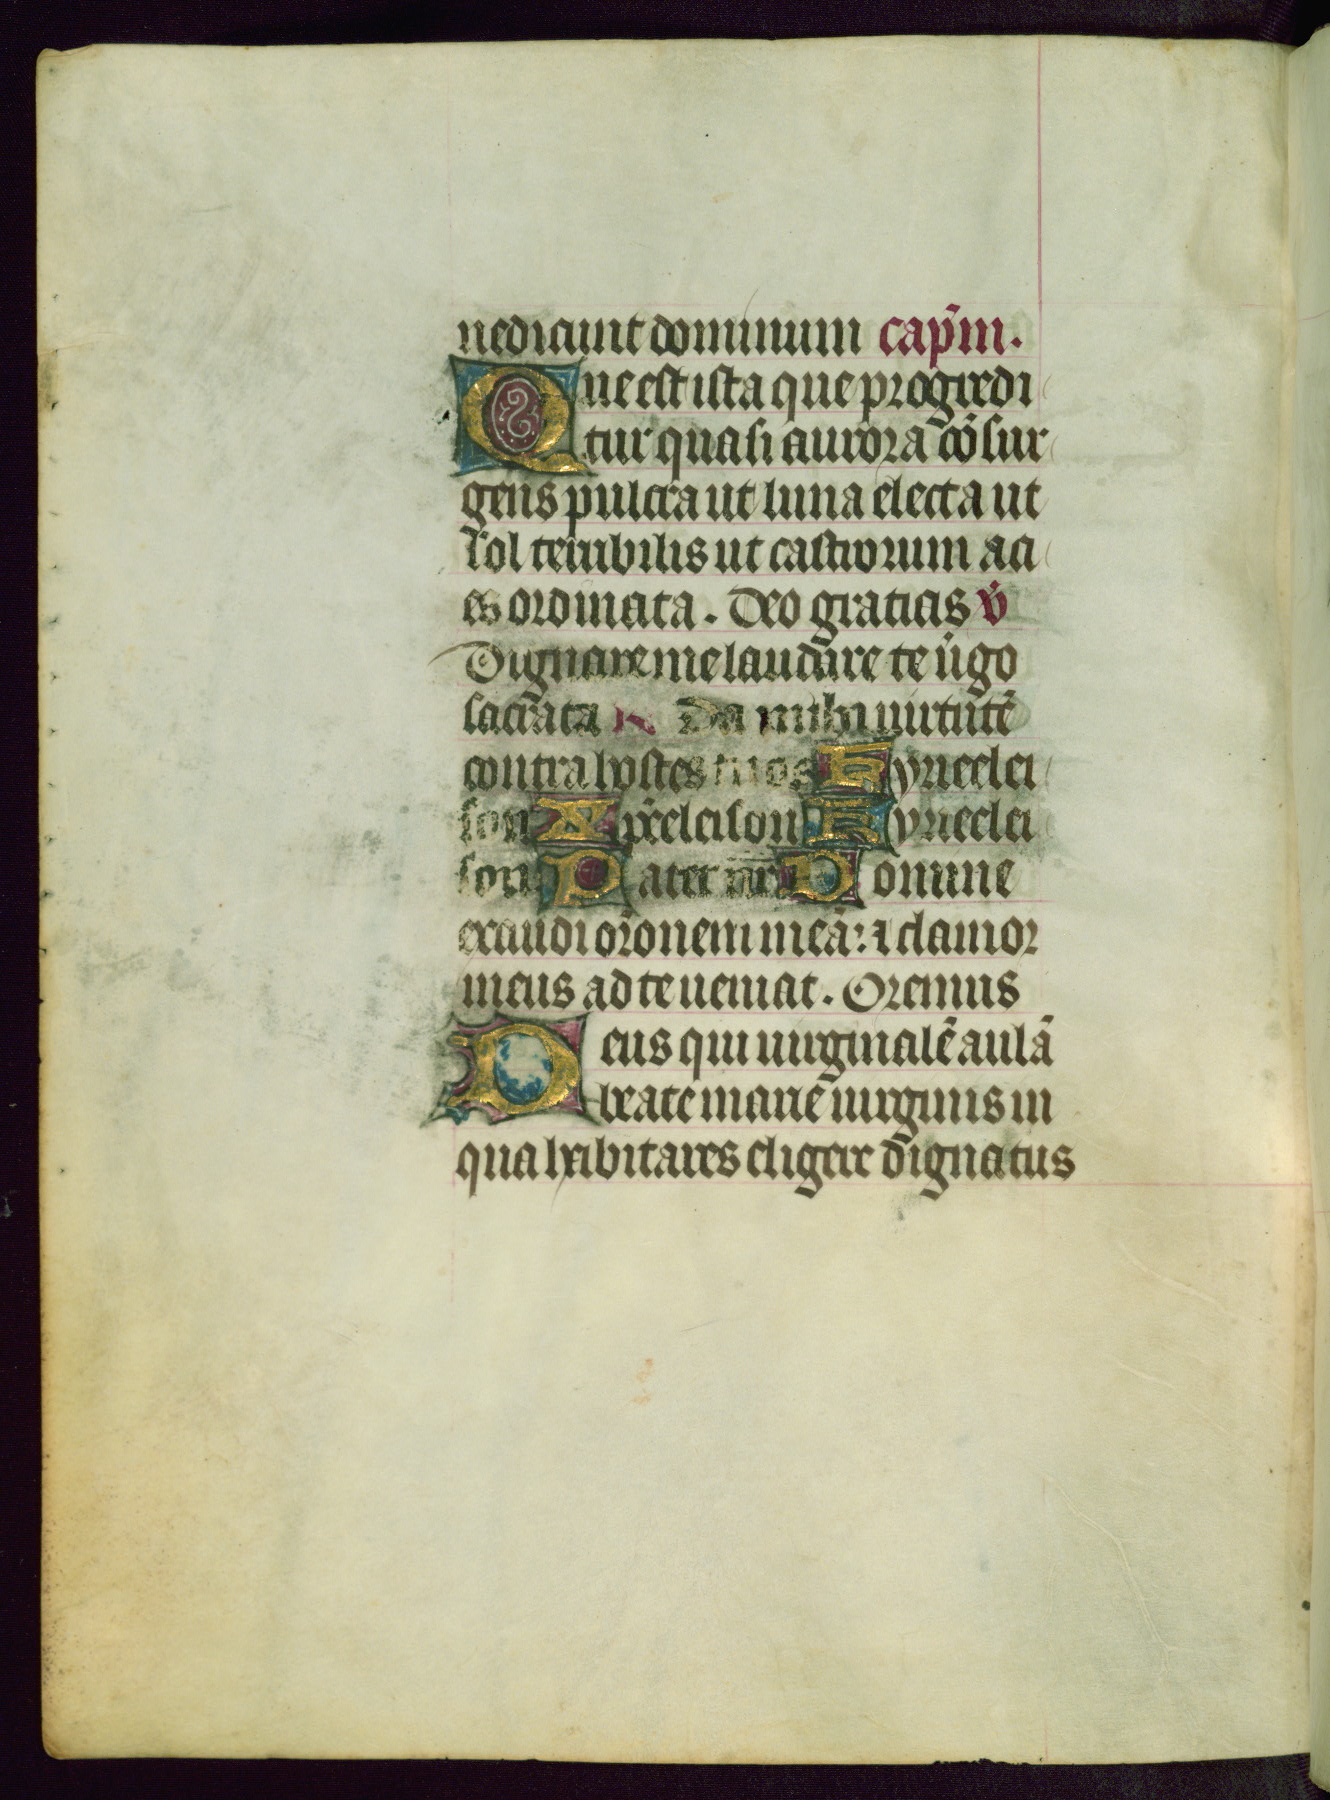 nedicunt dominum cap̄m.
Que est ista que progredi
tur quasi aurora cōsur
gens pulcra ut luna electa ut
sol terribilis ut castrorum aci
es ordinata. Deo gratias v̇
Dignare me laudare te u̇go
sacrata R Da mihi uirtutē
contra hostes tuos Kyrieelei
son Xp̄eleison Kyrieelei
son Pater nr̄ Domine
exaudi or̄onem meā: ⁊ clamor
meus ad te ueniat. Oremus
Deus qui uirginalē aulā
beate marie uirginis in
qua habitares eligere dignatus